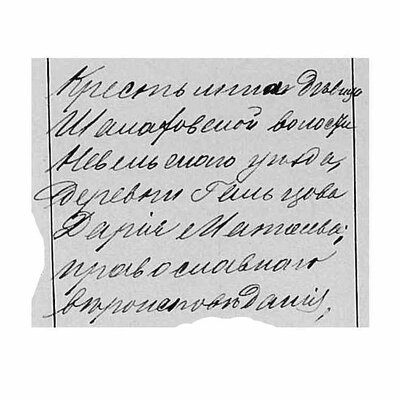 Крестьянка дѣвица
Шалаховской волости
Невельскаго уѣзда,
деревни Гельцова
Дарія Матѳеева,
православнаго
вѣроисповѣданія,